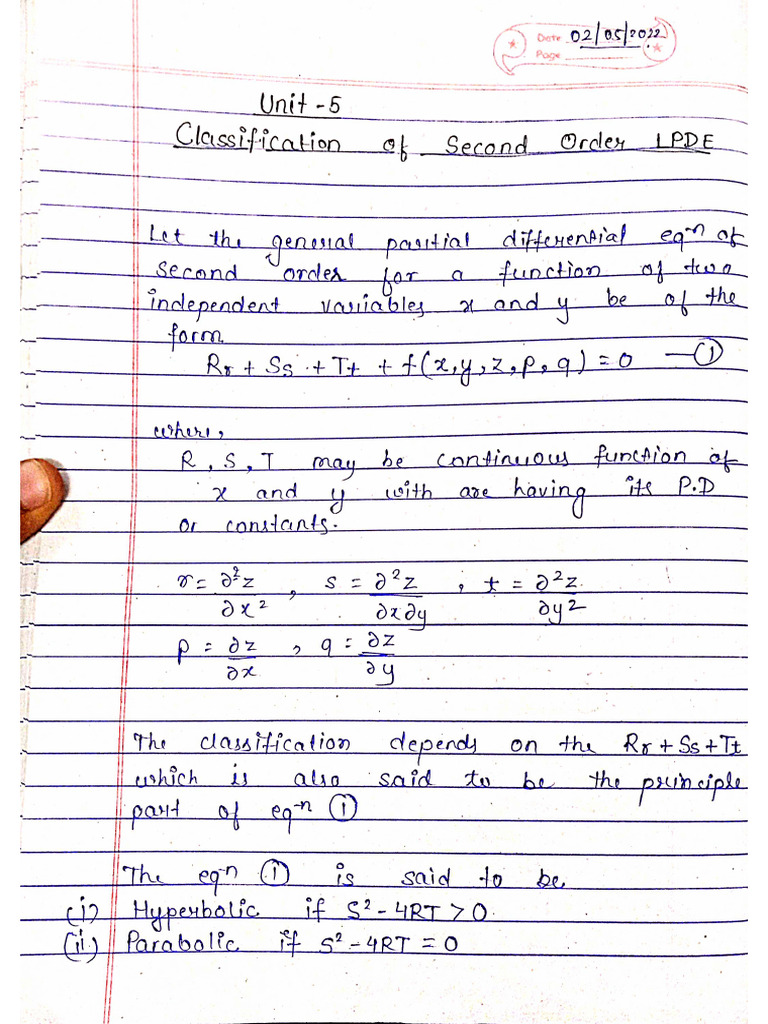 Date 02/05/2022
Page
Unit-5
Classification of Second Order LPDE
Let the general partial differential eqⁿ of
second order for a function of two
independent variables x and y be of the
form
Rr + Ss + Tt + f(x, y, z, p, q) = 0 —①
where,
R, S, T may be continuous function of
x and y with are having its P.D
or constants.
r = ∂²z/∂x² , s = ∂²z/∂x∂y , t = ∂²z/∂y²
p = ∂z/∂x , q = ∂z/∂y
The classification depends on the Rr + Ss + Tt
which is also said to be the principle
part of eqⁿ ①
The eqⁿ ① is said to be
(i) Hyperbolic if S² - 4RT > 0.
(ii) Parabolic if S² - 4RT = 0